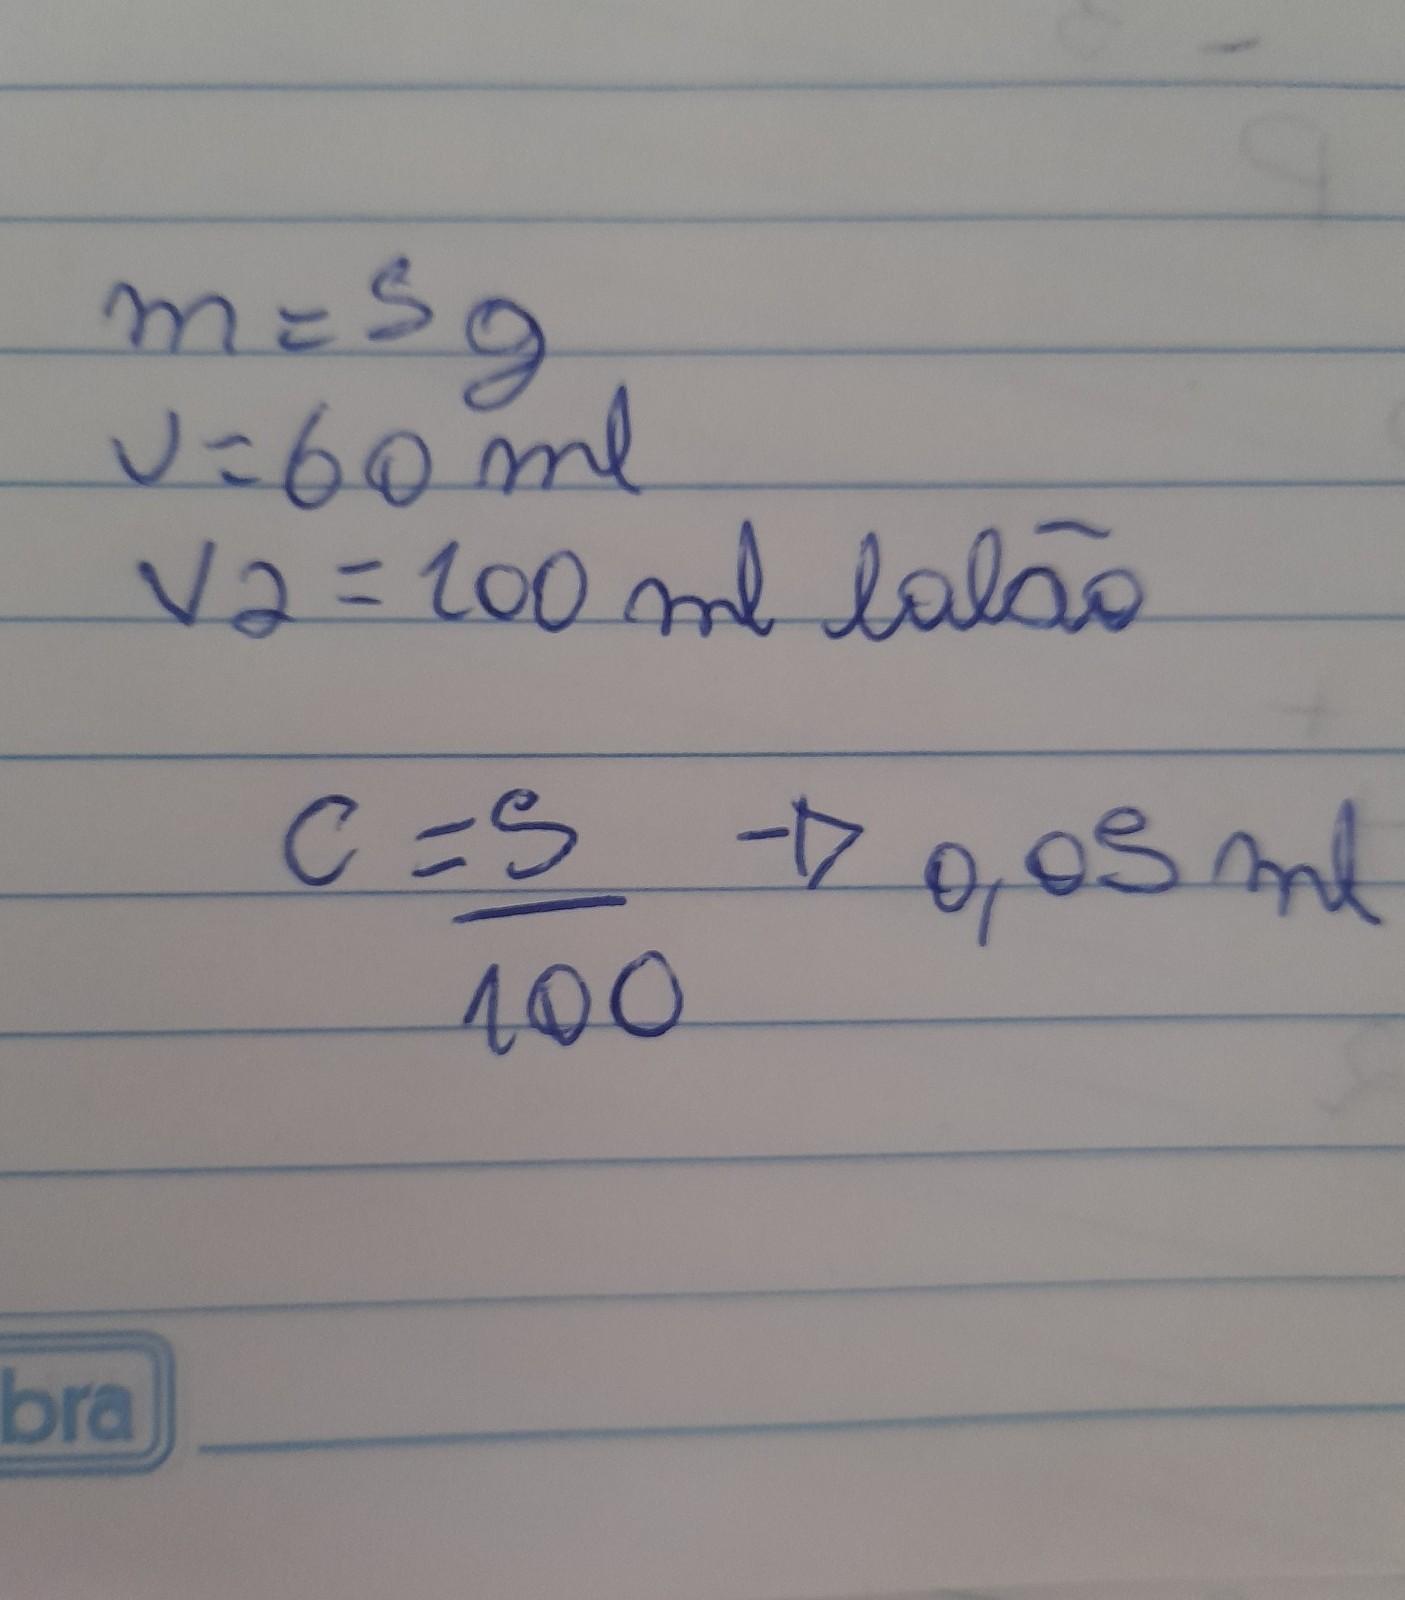 m = 5 g
V = 60 ml
V2 = 100 ml balão
C = 5 → 0,05 ml
100
bra